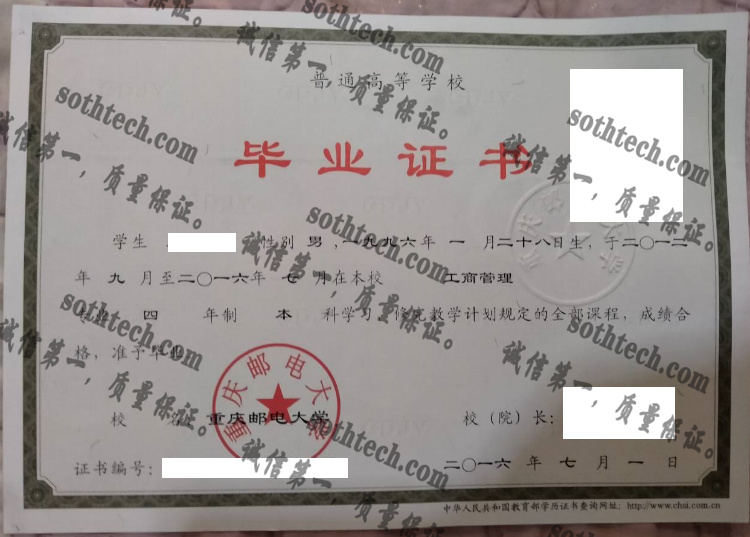 普通高等学校
毕业证书
学生 性别 男,一九九六年 一 月二十八日生,于二〇一二
年 九 月至二〇一六年 七 月在本校 工商管理
专业 四 年制 本 科学习,修完教学计划规定的全部课程,成绩合
格,准予毕业
校 名 重庆邮电大学 校(院)长:
重庆邮电大学
证书编号: 二〇一六 年 七 月 一 日
中华人民共和国教育部学历证书查询网址:http://www.chsi.com.cn
sothtech.com
诚信第一,质量保证。
sothtech.com
诚信第一,质量保证。
sothtech.com
诚信第一,质量保证。
sothtech.com
诚信第一,质量保证。
sothtech.com
诚信第一,质量保证。
sothtech.com
诚信第一,质量保证。
sothtech.com
诚信第一,质量保证。